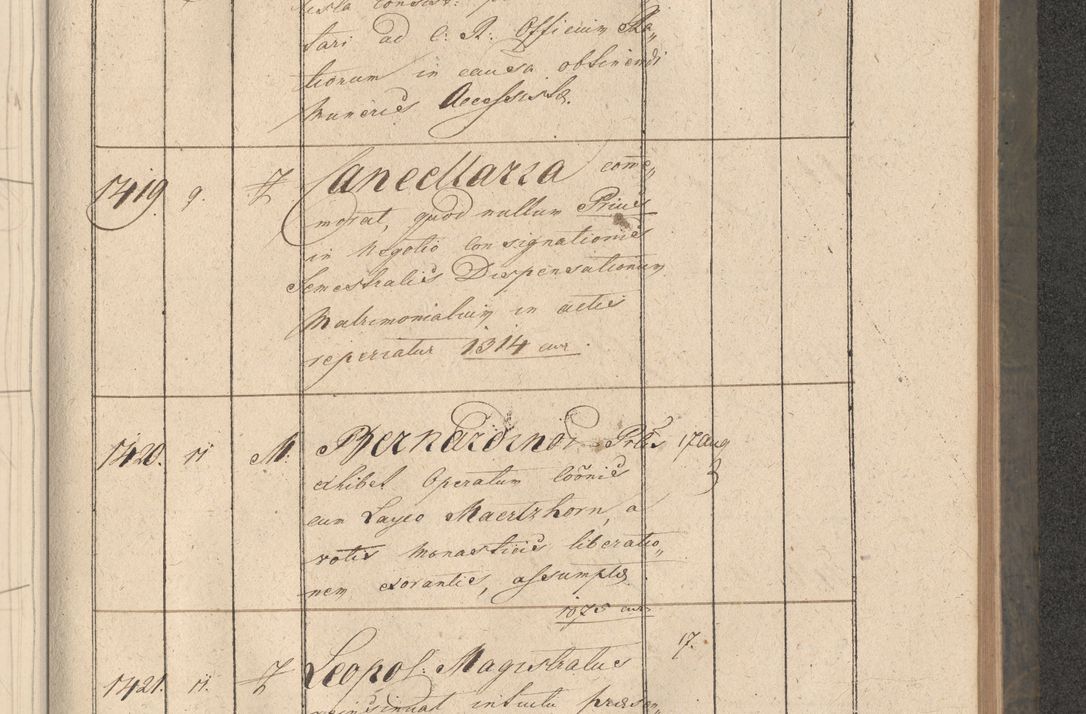 tari ad C. R. Officium Ra„
tionum in causa obtinendi
muneris Accessistæ.
1419. 9. Cancellaria com̄e„
morat, quod nullum Prius
in Negotio Consignationis
Semestralis Dispensationum
Matrimonialium in actis
reperiatur 1314 cur.
1420. 11. M. Bernardinos Prłis 17 aug
exhibet Operatum Coõnis
cum Layco Maertzhorn, a
votis monasticis liberatio„
nem exorantis, assumptæ.
1075 cur.
1421. 11. Leopol: Magistratus 17.
reinsinuat intuitu præsen„